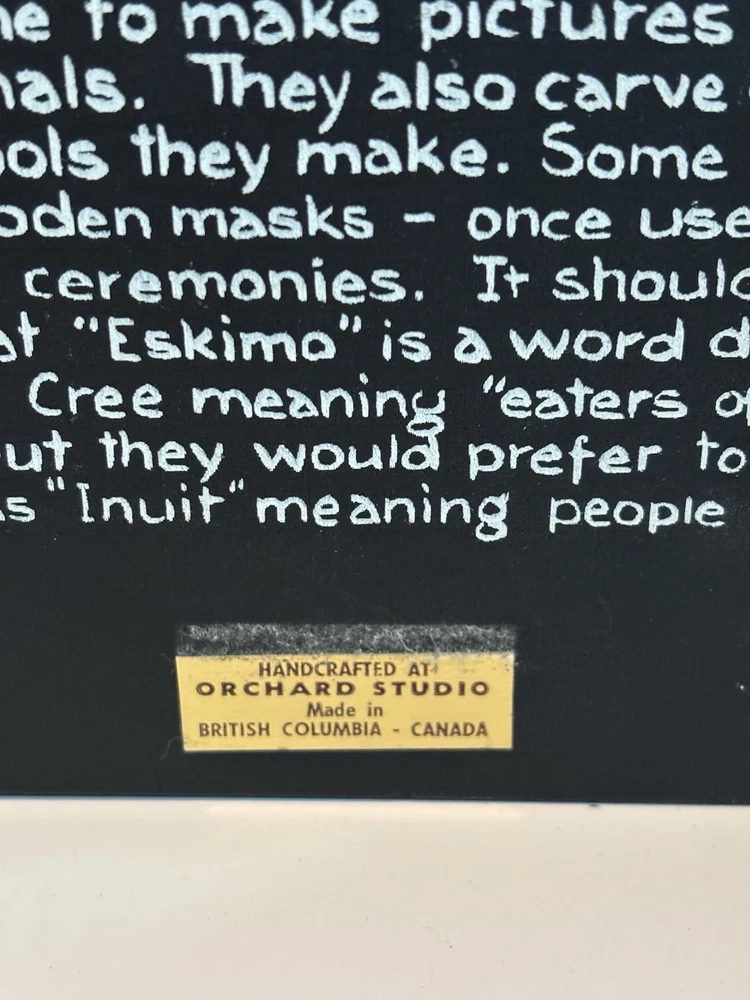 to make pictures
They also carve
they make. Some
masks - once
ceremonies. It
"Eskimo" is a word
Cree meaning "eaters
they would prefer to
"Inuit" meaning people
HANDCRAFTED AT
ORCHARD STUDIO
Made in
BRITISH COLUMBIA - CANADA